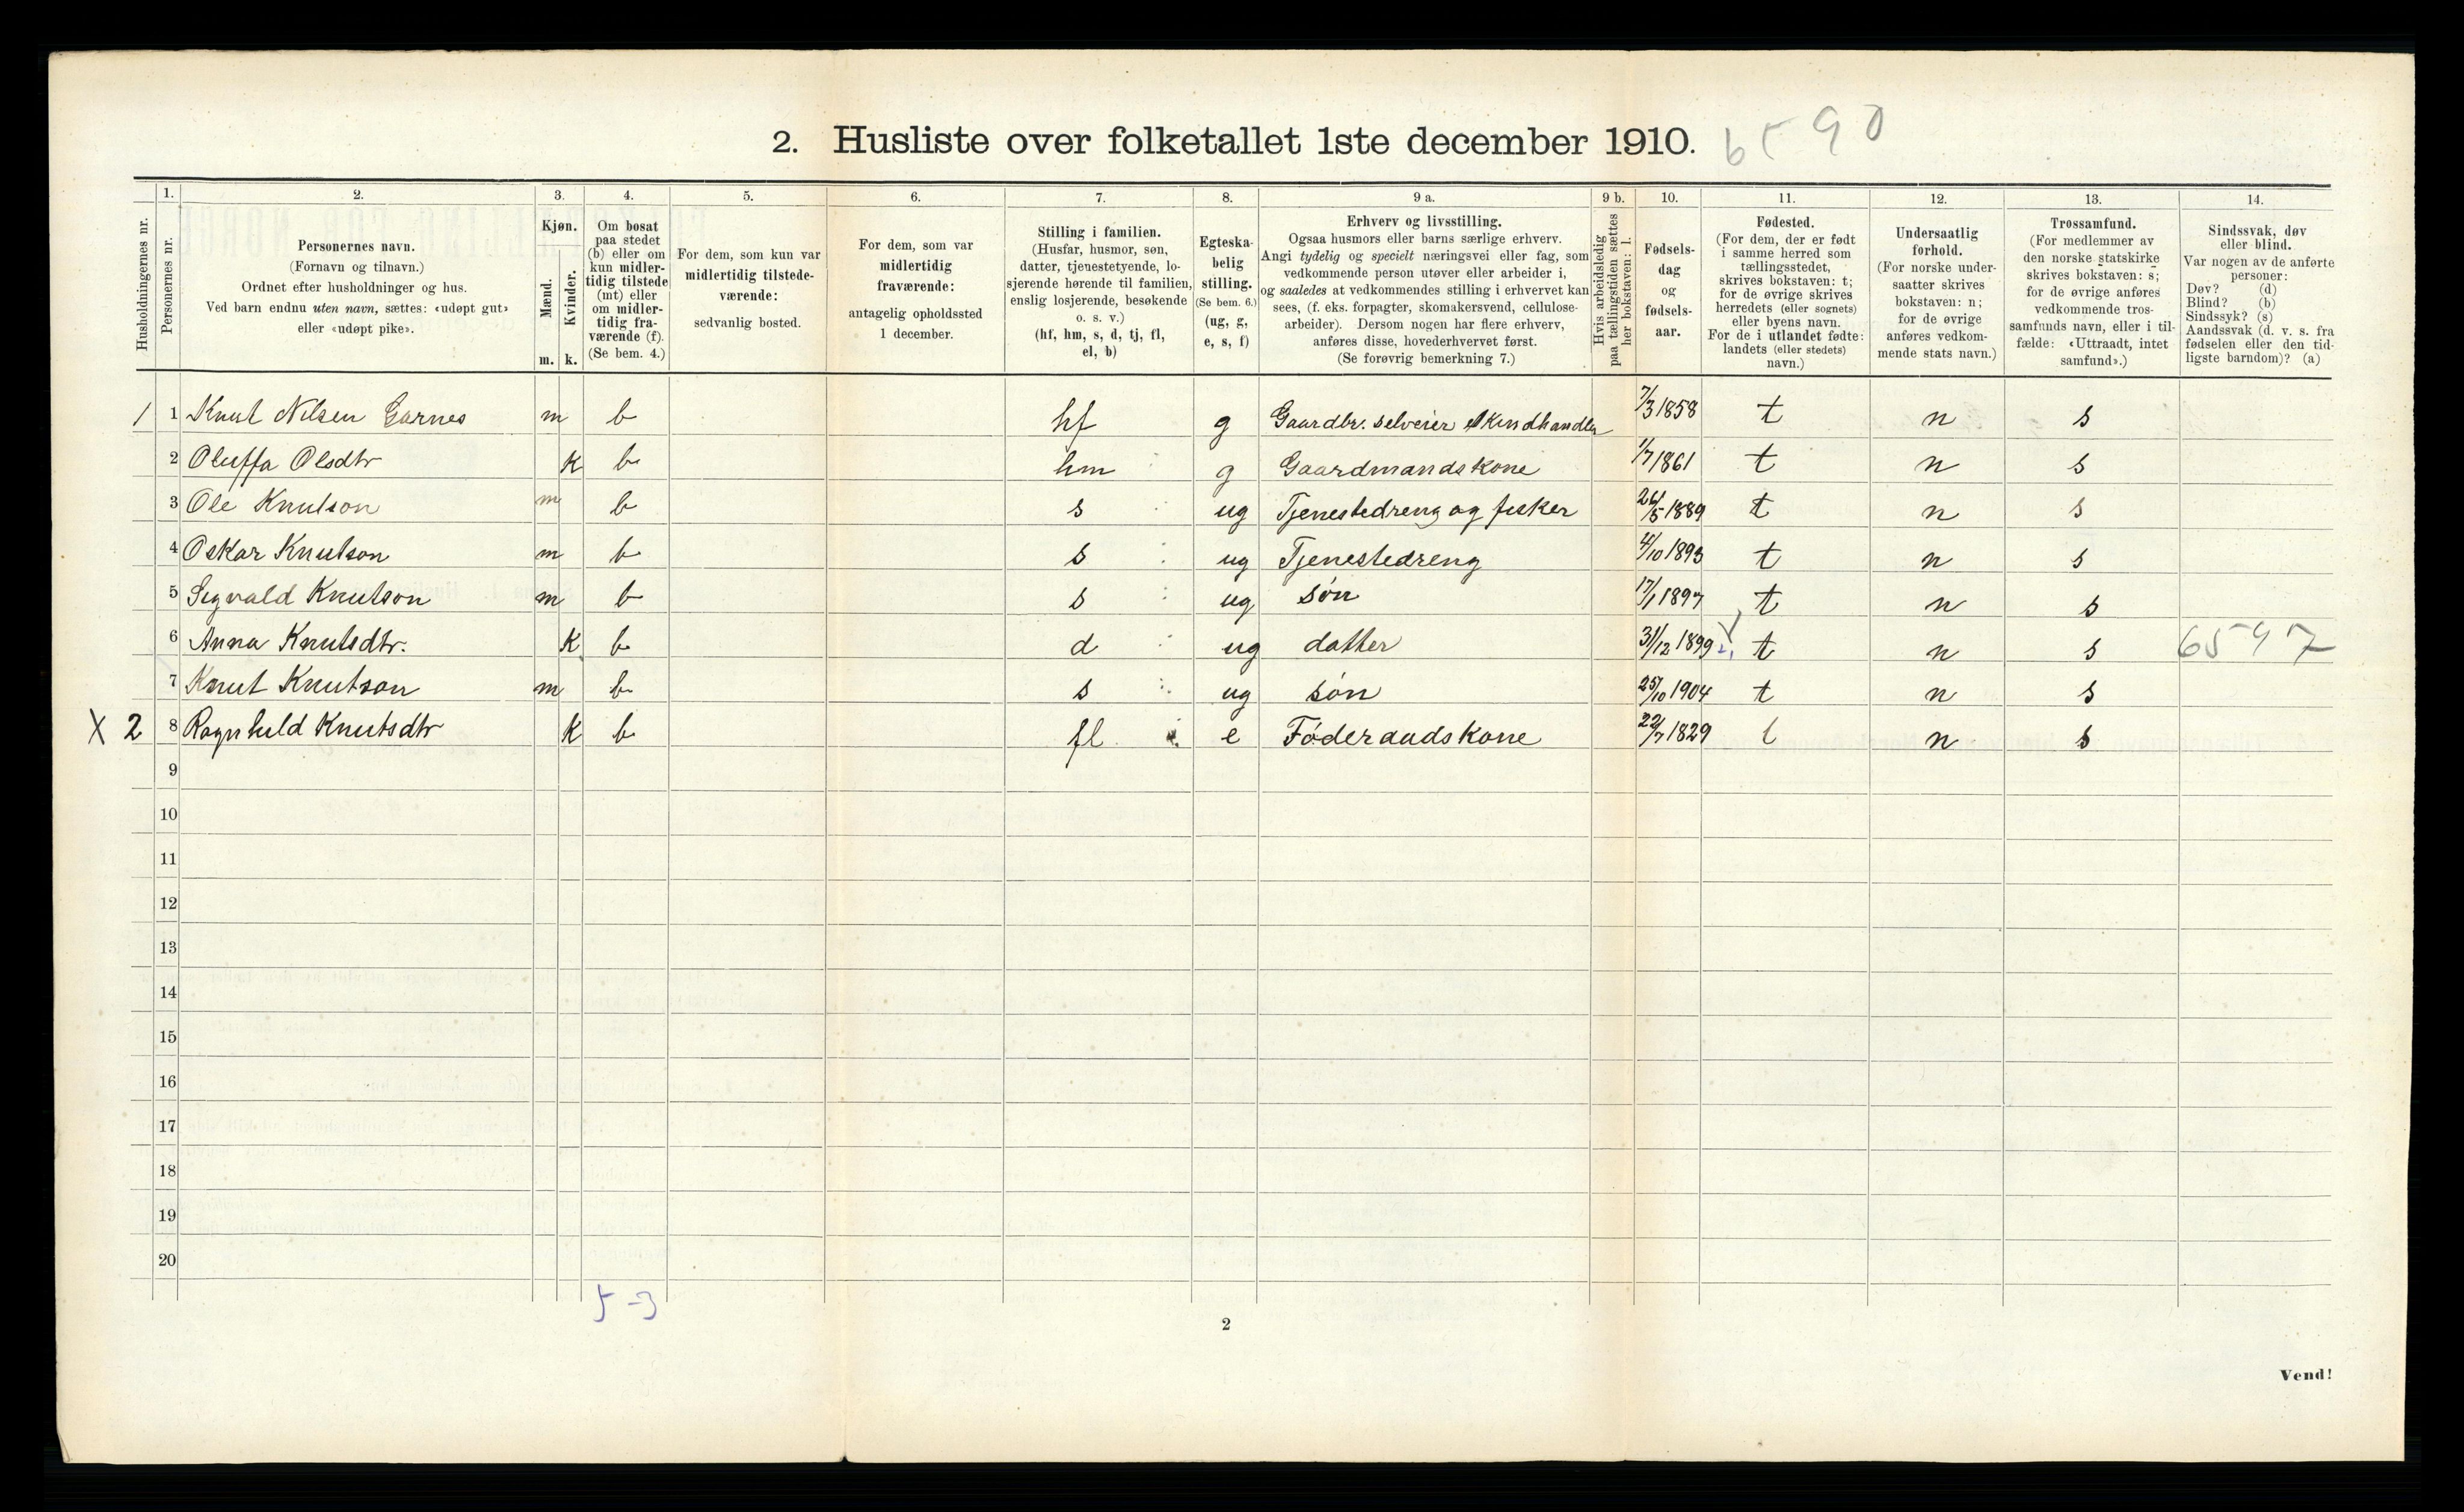 2. Husliste over folketallet 1ste december 1910. 6590
Husholdningernes nr.
1. Personernes nr.
2. Personernes navn. (Fornavn og tilnavn.) Ordnet efter husholdninger og hus. Ved barn endnu uten navn, sættes: «udøpt gut» eller «udøpt pike».
3. Kjøn. Mænd. m. Kvinder. k.
4. Om bosat paa stedet (b) eller om kun midlertidig tilstede (mt) eller om midlertidig fraværende (f). (Se bem. 4.)
5. For dem, som kun var midlertidig tilstedeværende: sedvanlig bosted.
6. For dem, som var midlertidig fraværende: antagelig opholdssted 1 december.
7. Stilling i familien. (Husfar, husmor, søn, datter, tjenestetyende, losjerende hørende til familien, enslig losjerende, besøkende o. s. v.) (hf, hm, s, d, tj, fl, el, b)
8. Egteskabelig stilling. (Se bem. 6.) (ug, g, e, s, f)
9 a. Erhverv og livsstilling. Ogsaa husmors eller barns særlige erhverv. Angi tydelig og specielt næringsvei eller fag, som vedkommende person utøver eller arbeider i, og saaledes at vedkommendes stilling i erhvervet kan sees, (f. eks. forpagter, skomakersvend, cellulosearbeider). Dersom nogen har flere erhverv, anføres disse, hovederhvervet først. (Se forøvrig bemerkning 7.)
9 b. Hvis arbeidsledig paa tællingstiden sættes her bokstaven: l.
10. Fødselsdag og fødselsaar.
11. Fødested. (For dem, der er født i samme herred som tællingsstedet, skrives bokstaven: t; for de øvrige skrives herredets (eller sognets) eller byens navn. For de i utlandet fødte: landets (eller stedets) navn.)
12. Undersaatlig forhold. (For norske undersaatter skrives bokstaven: n; for de øvrige anføres vedkommende stats navn.)
13. Trossamfund. (For medlemmer av den norske statskirke skrives bokstaven: s; for de øvrige anføres vedkommende trossamfunds navn, eller i tilfælde: «Uttraadt, intet samfund».)
14. Sindssvak, døv eller blind. Var nogen av de anførte personer: Døv? (d) Blind? (b) Sindssyk? (s) Aandssvak (d. v. s. fra fødselen eller den tidligste barndom)? (a)
1 1 Knut Nilsen Garnes m b hf g Gaardbr. selveier Skindhandler 7/3 1858 t n s
2 Oluffa Olsdtr K b hm g Gaardmandskone 1/7 1861 t n s
3 Ole Knutson m b s ug Tjenestedreng og fisker 26/5 1889 t n s
4 Oskar Knutson m b s ug Tjenestedreng 4/10 1893 t n s
5 Sigvald Knutson m b s ug søn 17/1 1897 t n s
6 Anna Knutsdtr. K b d ug datter 31/12 1899 t n s 6597
7 Knut Knutson m b s ug søn 25/10 1904 t n s
X 2 8 Ragnhild Knutsdtr K b fl e Føderaadskone 22/7 1829 t n s
9
10
11
12
13
14
15
16
17
18
19
20
5-3
2
Vend!